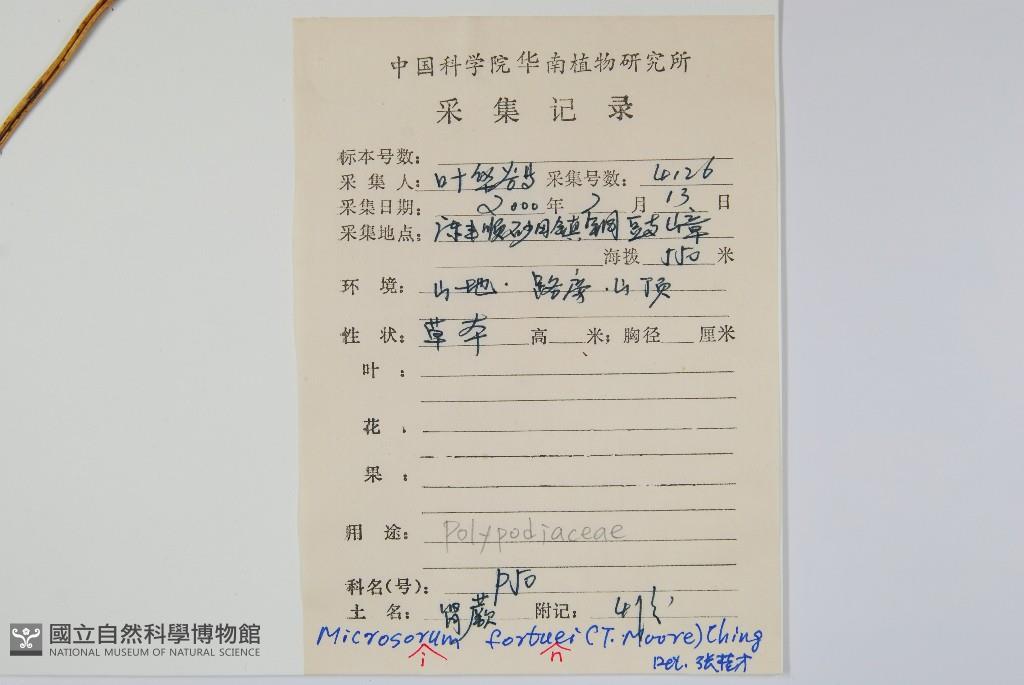 中国科学院华南植物研究所
采集记录
标本号数：
采集人：叶华谷 采集号数：4126
采集日期：2000年7月13日
采集地点：丰顺砂田镇铜鼓嶂
海拨 550 米
环境：山地. 路旁. 山顶
性状：草本 高 米；胸径 厘米
叶：
花：
果：
用途：Polypodiaceae
科名(号)：P50
土名：蕨 附记：4份
Microsorum fortuei (T. Moore) Ching
i n
Det. 张桂才
國立自然科學博物館
NATIONAL MUSEUM OF NATURAL SCIENCE